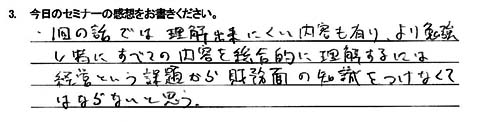 3. 今日のセミナーの感想をお書きください。
・1回の話では理解出来にくい内容も有り、より勉強
し特にすべての内容を総合的に理解するには
経営という課題から財務面の知識をつけなくて
はならないと思う。